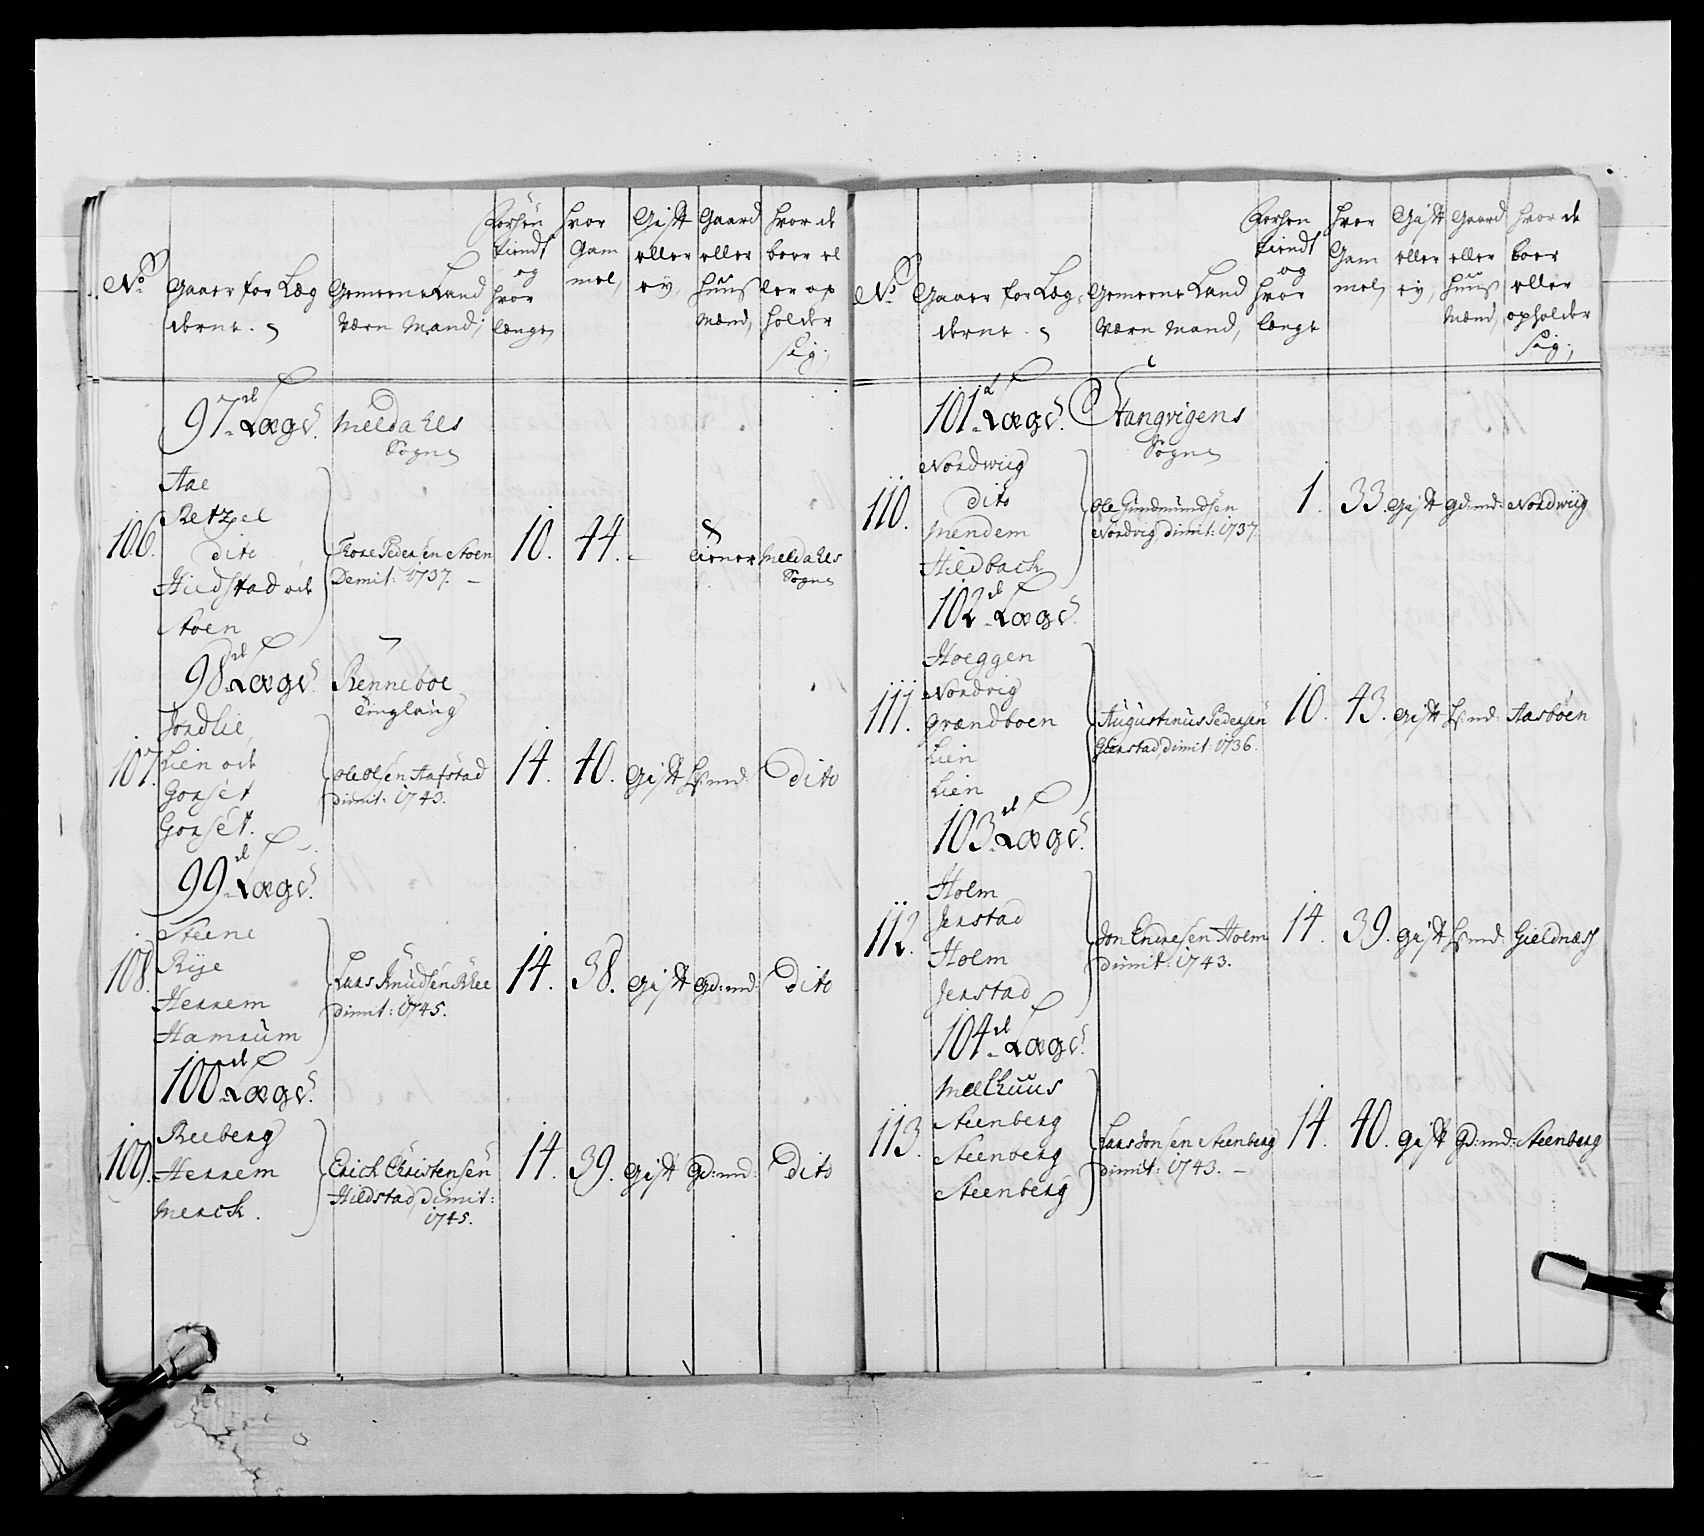 No.
Gaarer for Læg
derne.
Gemeene Land
Værn Mand;
Forhen
tiendt
og
hvor
længe
hvor
Gam
mel,
Gift
eller
ey,
Gaard
eller
Huus
Mænd,
hvor de
boer el
ler op
holder
sig;
97de Lægd.
Meldahls
Sogn
Aae
Retzel
106.
dito
Hiedstad ock
Stoen
Thore Pedersen Stoen
Demit: 1737. –
10.
44.
–
Tiener
Meldahls
Sogn
98de Lægd.
Renneboe
Tinglaug
Jordlie,
107.
Lien ock
Gorset
Gorset.
Ole Olsen Aafstad
dimit: 1743.
14.
40.
Gift
Hs:md:
Dito
99de Lægd.
Steene
108.
Rije
Herrem
Hamrum
Lars Knudsen Rhee
dimit: 1745.
14.
38.
Gift
Gd:md:
Dito
100de Lægd.
Reeberg
109.
Herrem
Merck.
Erich Christensen
Hildstad, dimit:
1745.
14.
39.
Gift
Gd:md:
Dito
No.
Gaarer for Læg
derne.
Gemeene Land
Værn Mand,
Forhen
tiendt
og
hvor
længe
hvor
Gam
mel,
Gift
eller
ey,
Gaard
eller
Huus
Mænd,
hvor de
boer
eller
opholder
sig;
101de Lægd.
Stangvigens
Sogn
Nordwiig
110.
dito
Mendem
Hildbach
Ole Gundmundsen
Nordvig, dimit: 1737.
1.
33.
Gift
Gd:md:
Nordwiig
102de Lægd.
Hoeggen
Nordvig
111.
Grændboen
Lien
Lien
Augustinus Pedersen
dimit: 1736.
10.
43.
Gift
Hs:md:
Aasbøen
103de Lægd.
Holm
112.
Jerstad
Holm
Jerstad
Jon Endresen Holm
dimit: 1743.
14.
39.
Gift
Hs:md:
Gieldnæss
104de Lægd.
Melhuus
113.
Steenberg
Steenberg
Steenberg
Lars Jonsen Steenberg
dimit: 1743. –
14.
40.
Gift
Gd:md:
Steenberg